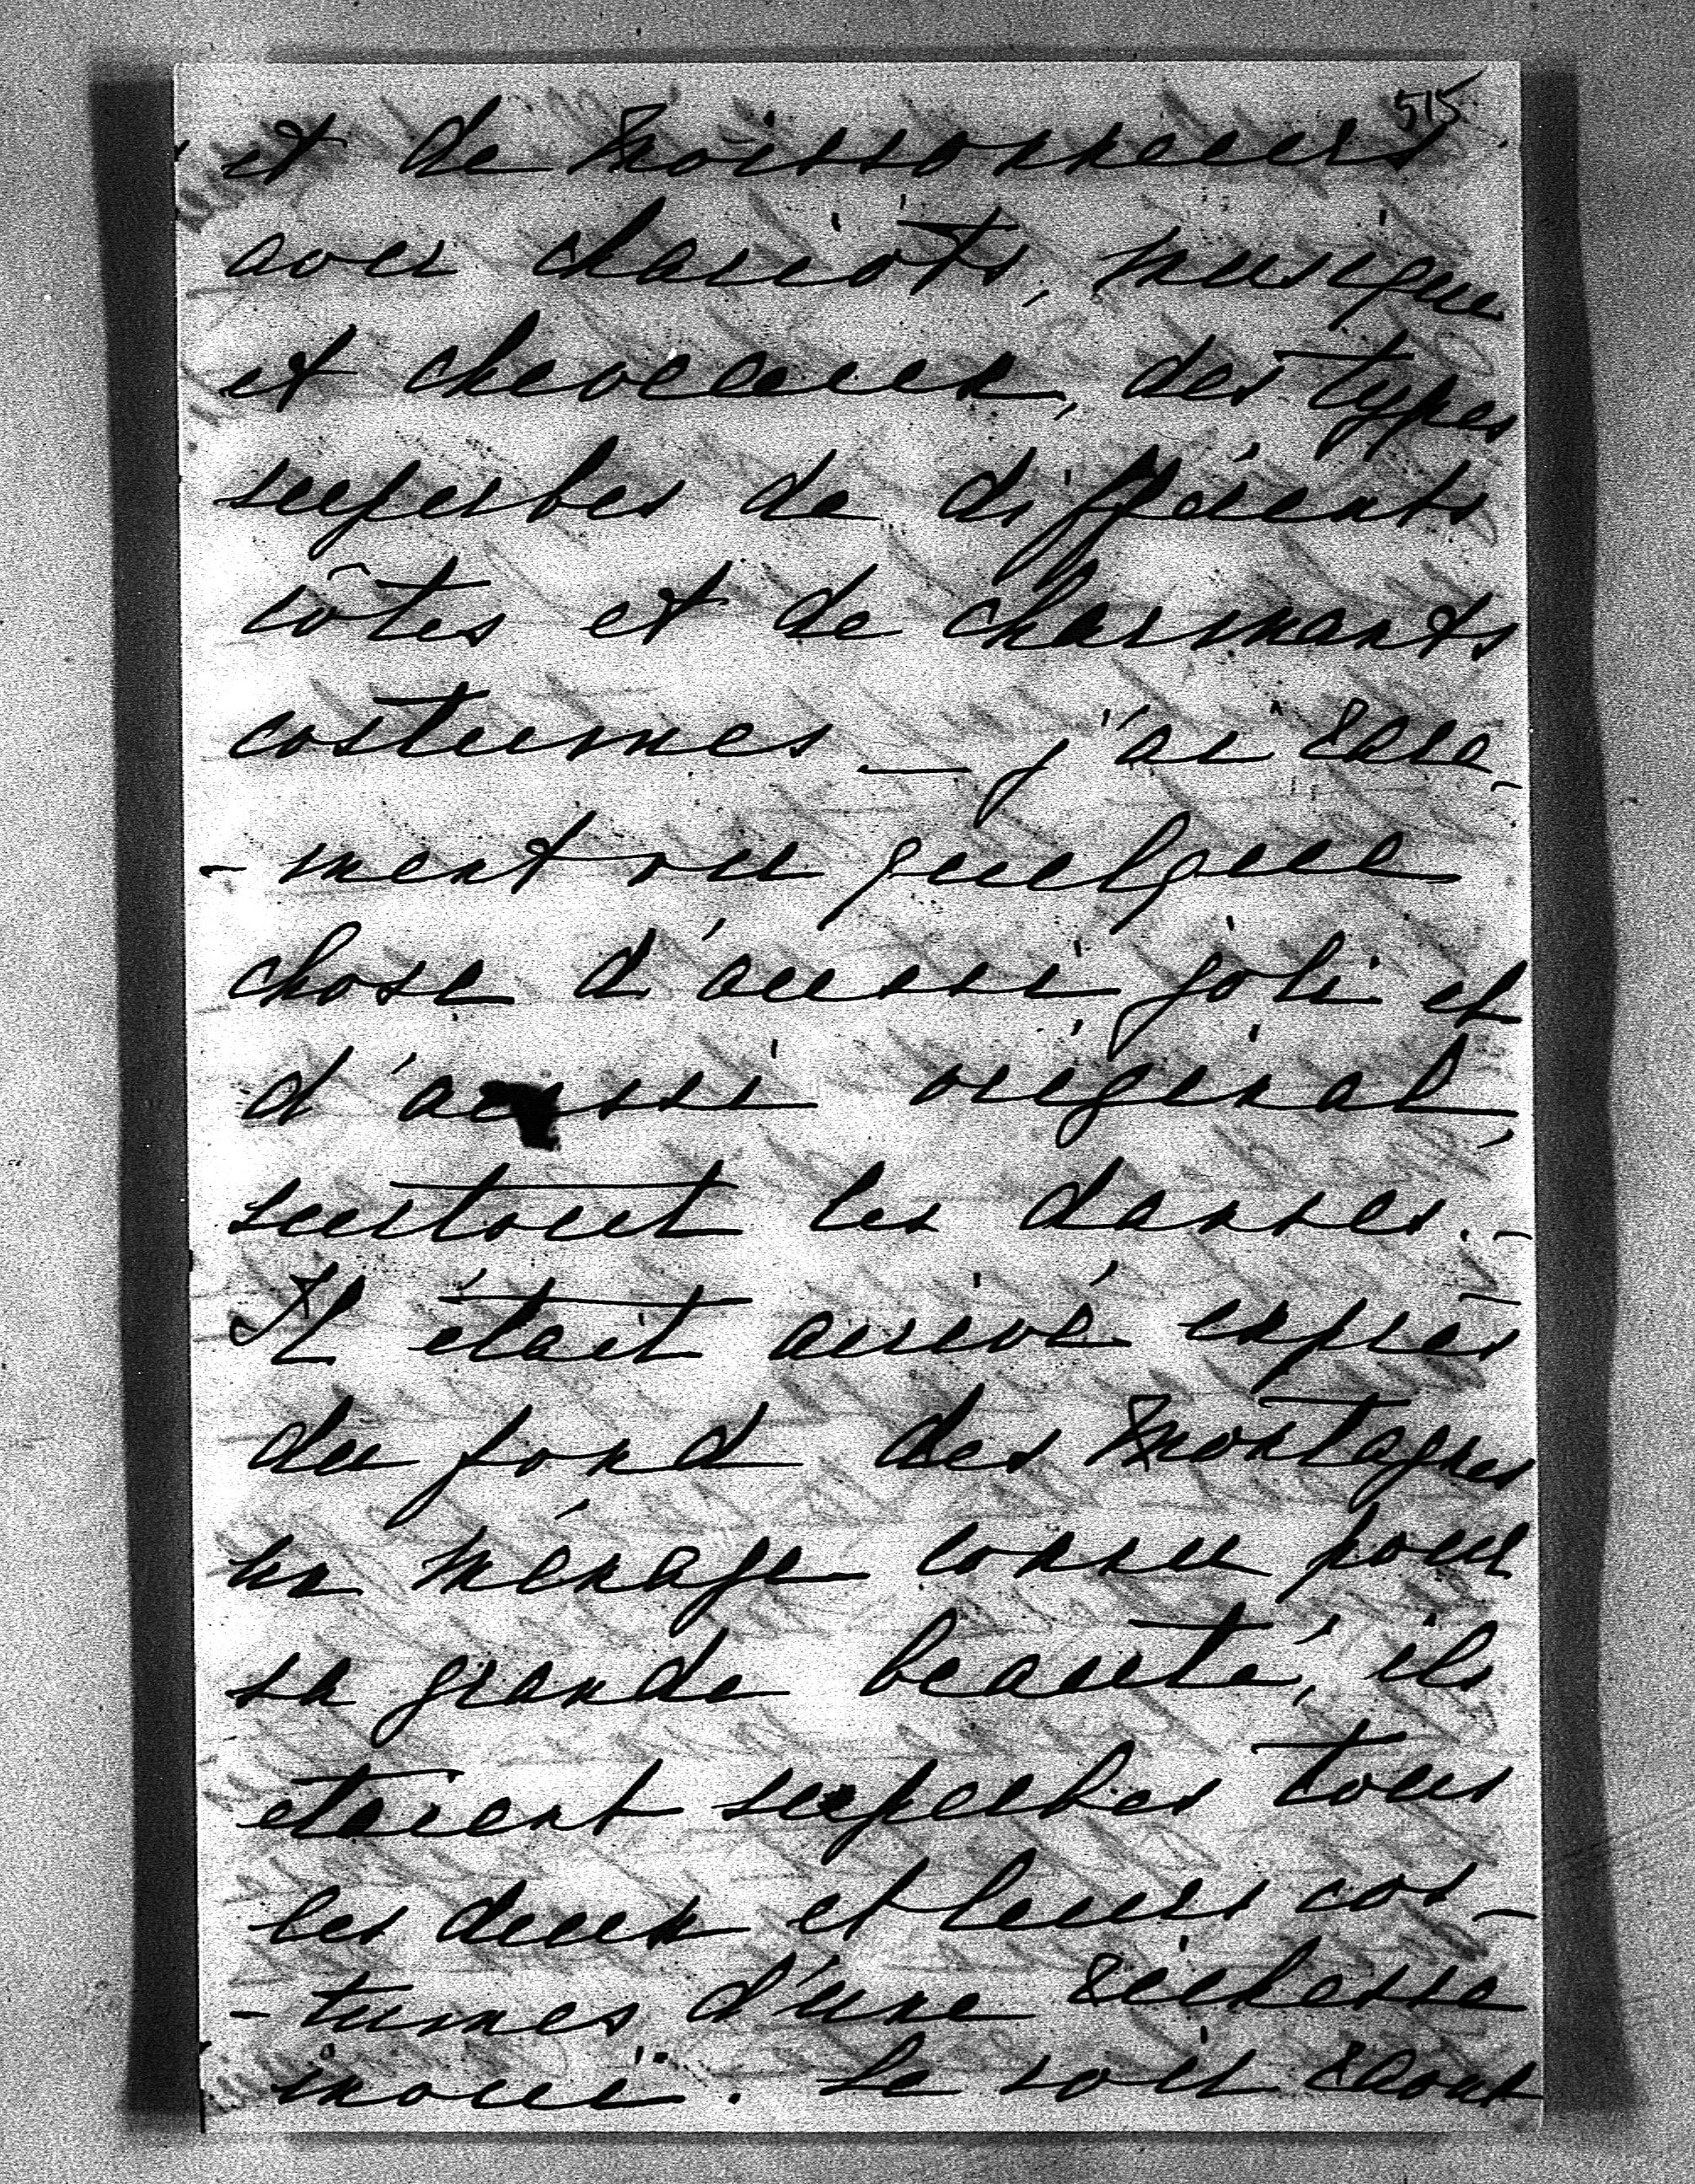 515
et de moissonneurs
avec chariots, musique
et chevaux, des types
superbes de différents
côtés et de charmants
costumes _ j'ai rare-
-ment vu quelque
chose d'aussi joli et
d'aussi original,
surtout les danses. -
Il était arrivé exprès
du fond des montagnes
un ménage connu pour
sa grande beauté, ils
etaient superbes tous
les deux et leurs cos-
-tumes d'une richesse
inouië. Le soir raout